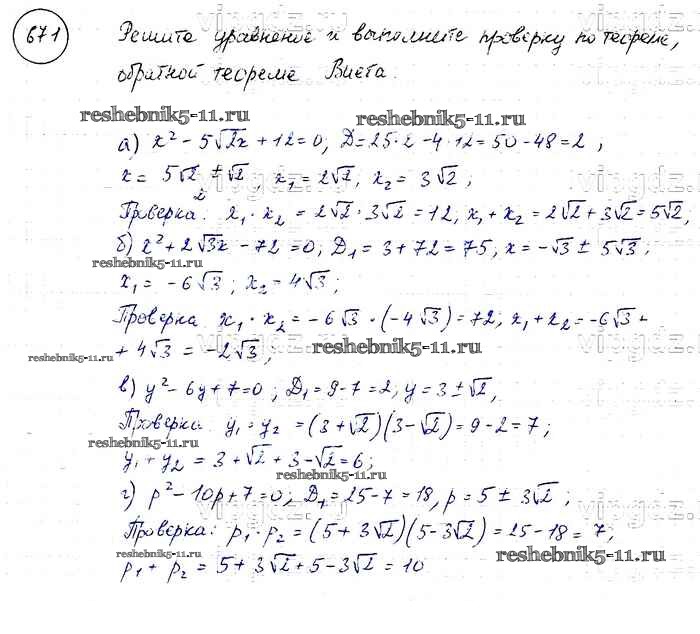 671
Решите уравнение и выполните проверку по теореме,
обратной теореме Виета.
reshebnik5-11.ru
reshebnik5-11.ru
а) x² - 5√2x + 12 = 0; D = 25·2 - 4·12 = 50 - 48 = 2;
x = (5√2 ± √2)/2, x₁ = 2√2, x₂ = 3√2;
Проверка: x₁ · x₂ = 2√2 · 3√2 = 12, x₁ + x₂ = 2√2 + 3√2 = 5√2,
б) x² + 2√3x - 72 = 0; D₁ = 3 + 72 = 75, x = -√3 ± 5√3;
reshebnik5-11.ru
x₁ = -6√3; x₂ = 4√3;
Проверка x₁ · x₂ = -6√3 · (-4√3) = 72, x₁ + x₂ = -6√3 +
+ 4√3 = -2√3;
reshebnik5-11.ru
reshebnik5-11.ru
в) y² - 6y + 7 = 0; D₁ = 9 - 7 = 2; y = 3 ± √2,
Проверка: y₁ = y₂ = (3 + √2)(3 - √2) = 9 - 2 = 7;
reshebnik5-11.ru
y₁ + y₂ = 3 + √2 + 3 - √2 = 6;
г) p² - 10p + 7 = 0; D₁ = 25 - 7 = 18, p = 5 ± 3√2;
Проверка: p₁ · p₂ = (5 + 3√2)(5 - 3√2) = 25 - 18 = 7;
reshebnik5-11.ru
reshebnik5-11.ru
p₁ + p₂ = 5 + 3√2 + 5 - 3√2 = 10